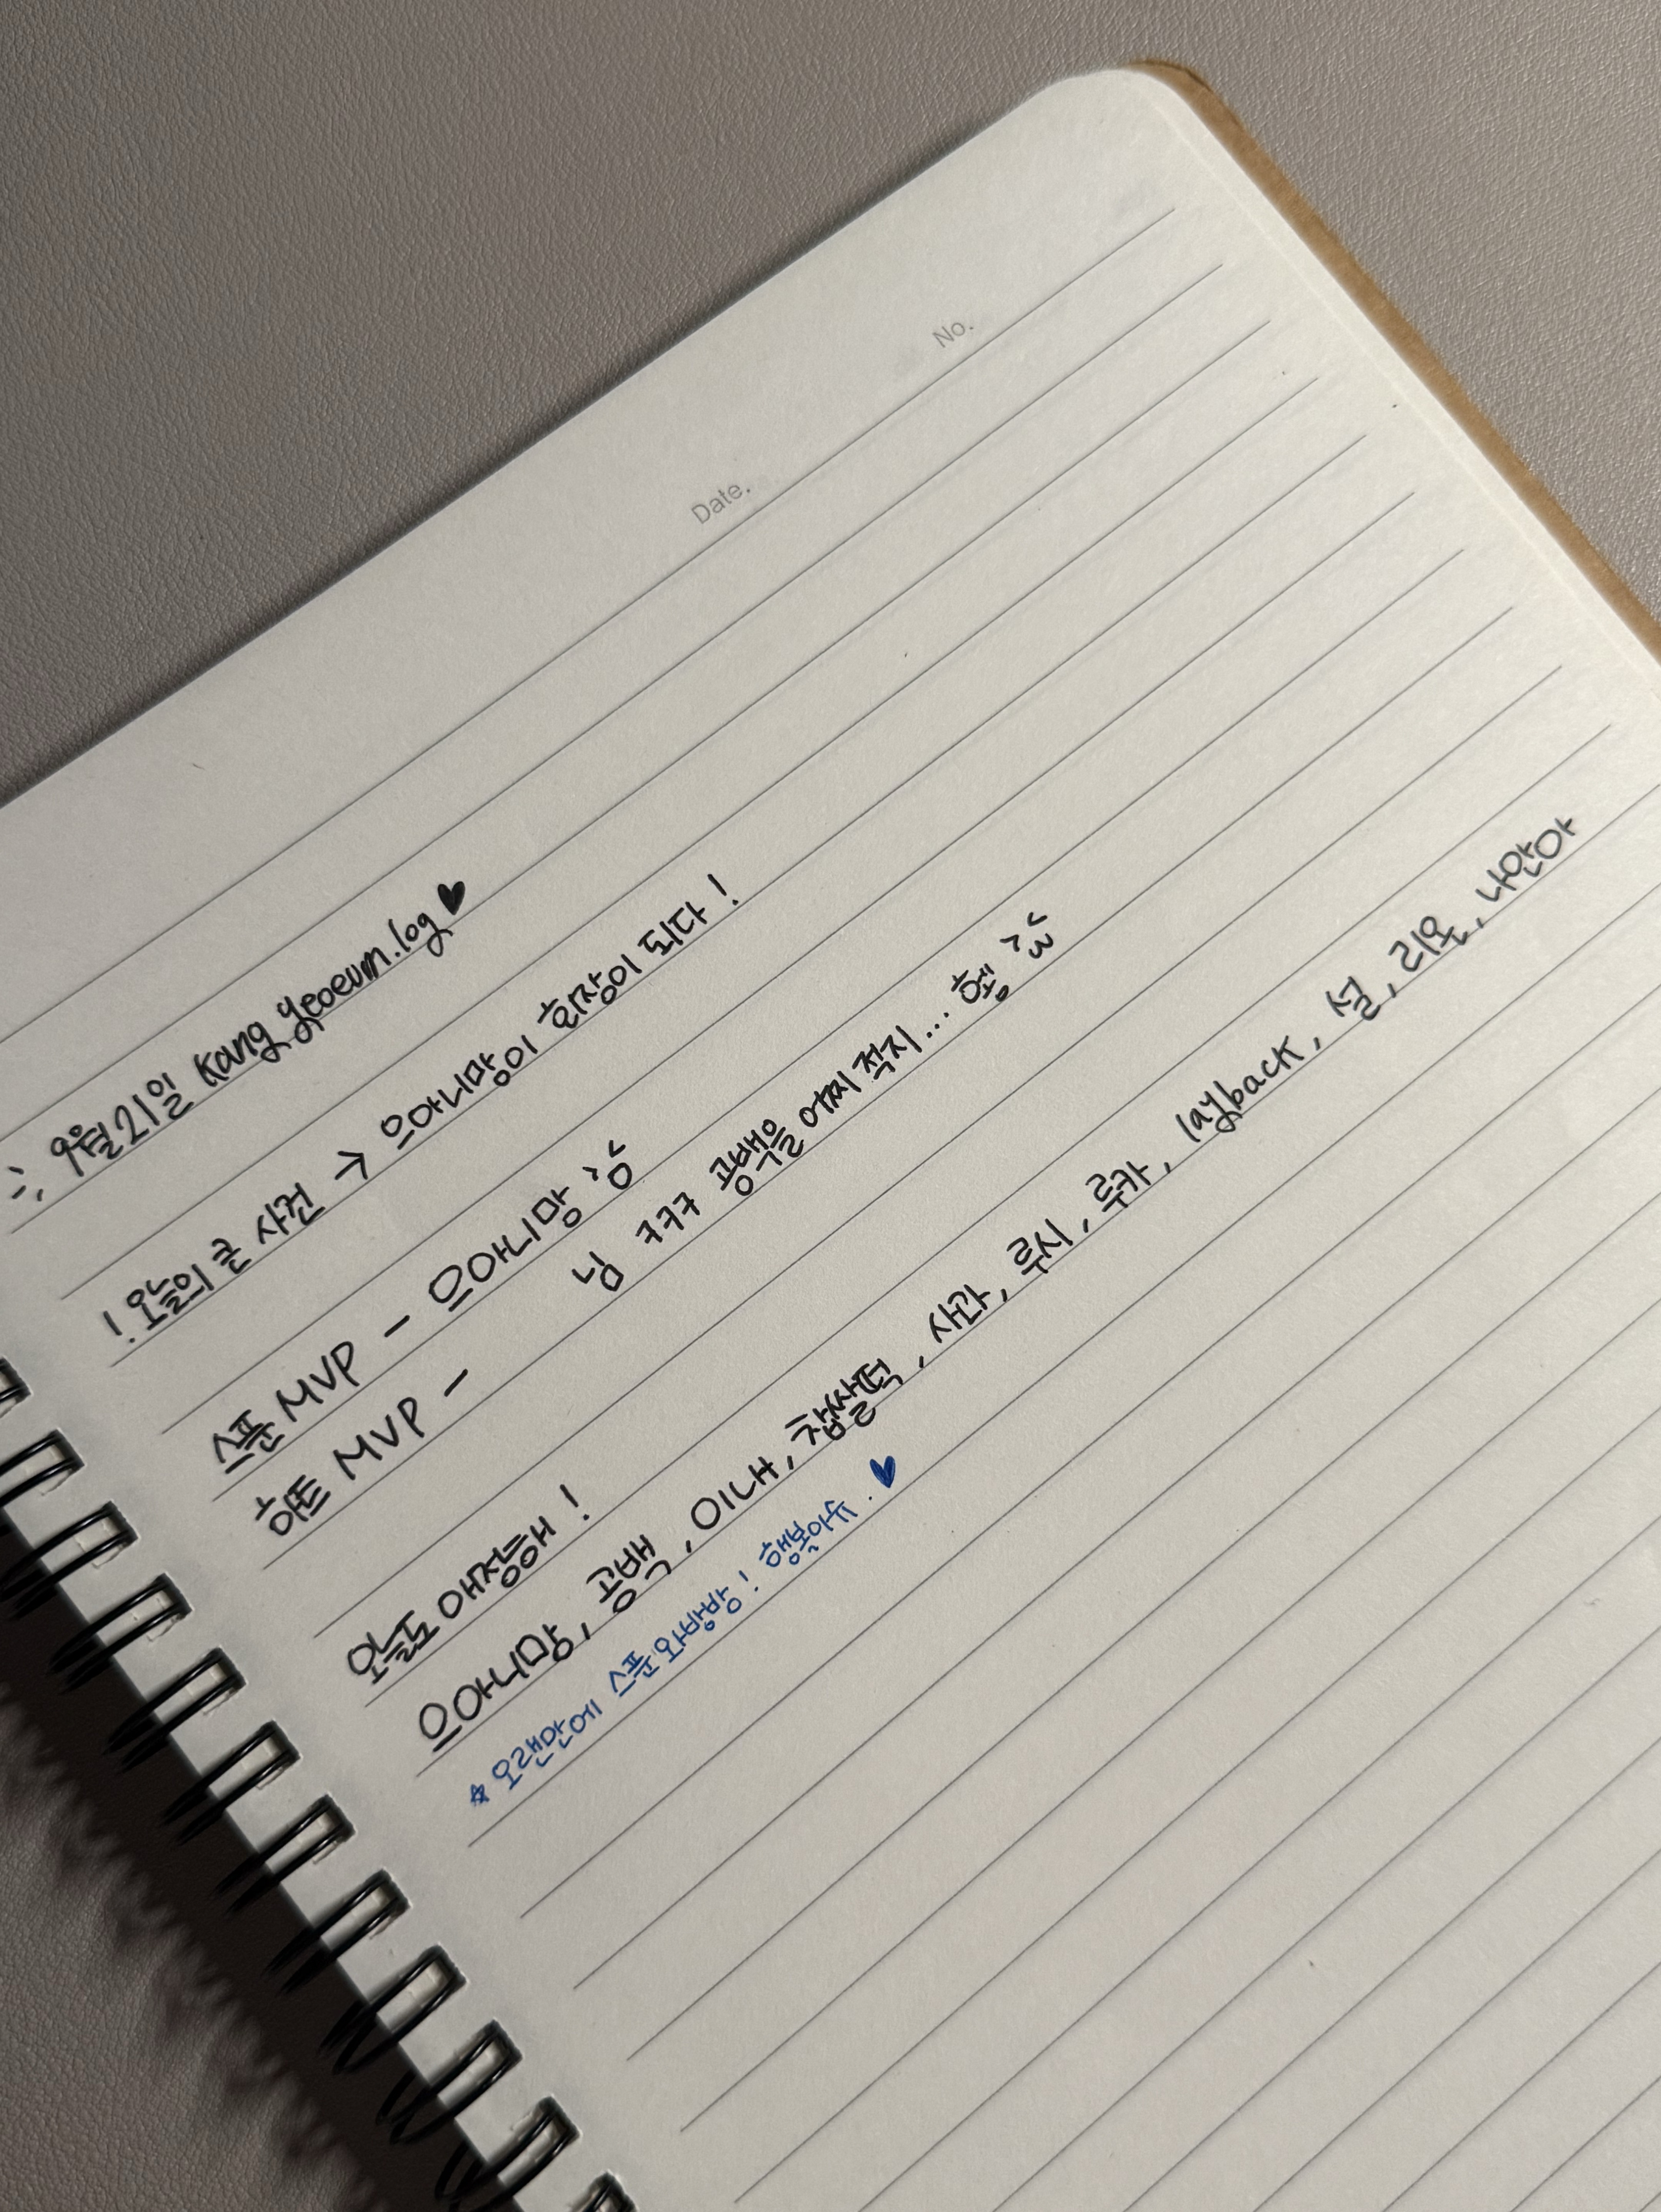 No.
Date.
9월 21일 kang yeoeum.log ♥
! 오늘의 큰 사건 → 으아니망이 회장이 되다 !
스푼 MVP - 으아니망
하트 MVP -     님 ㅋㅋㅋ 공백을 어찌 적지... 헹
오늘도 애정해 !
으아니망, 공백, 이내, 찹쌀떡, 사관, 루시, 루카, layback, 설, 리온, 나안아
☆ 오랜만에 스푼 와방방 ! 행복이슈. ♥